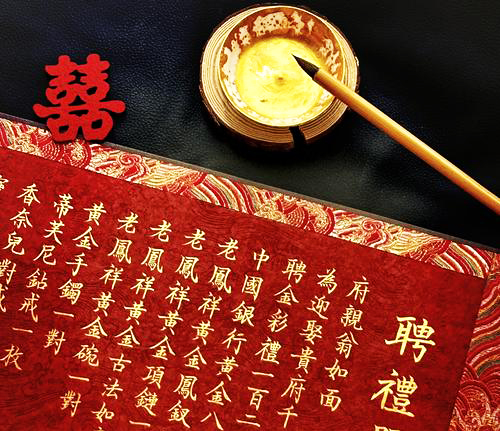 聘禮
府親翁如面
為迎娶貴府千
聘金彩禮一百二
中國銀行黃金八
老鳳祥黃金鳳釵
老鳳祥黃金項鏈一
老鳳祥黃金古法如
老鳳祥黃金碗一對
黃金手鐲一對
蒂芙尼鑽戒一枚
香奈兒對戒
囍